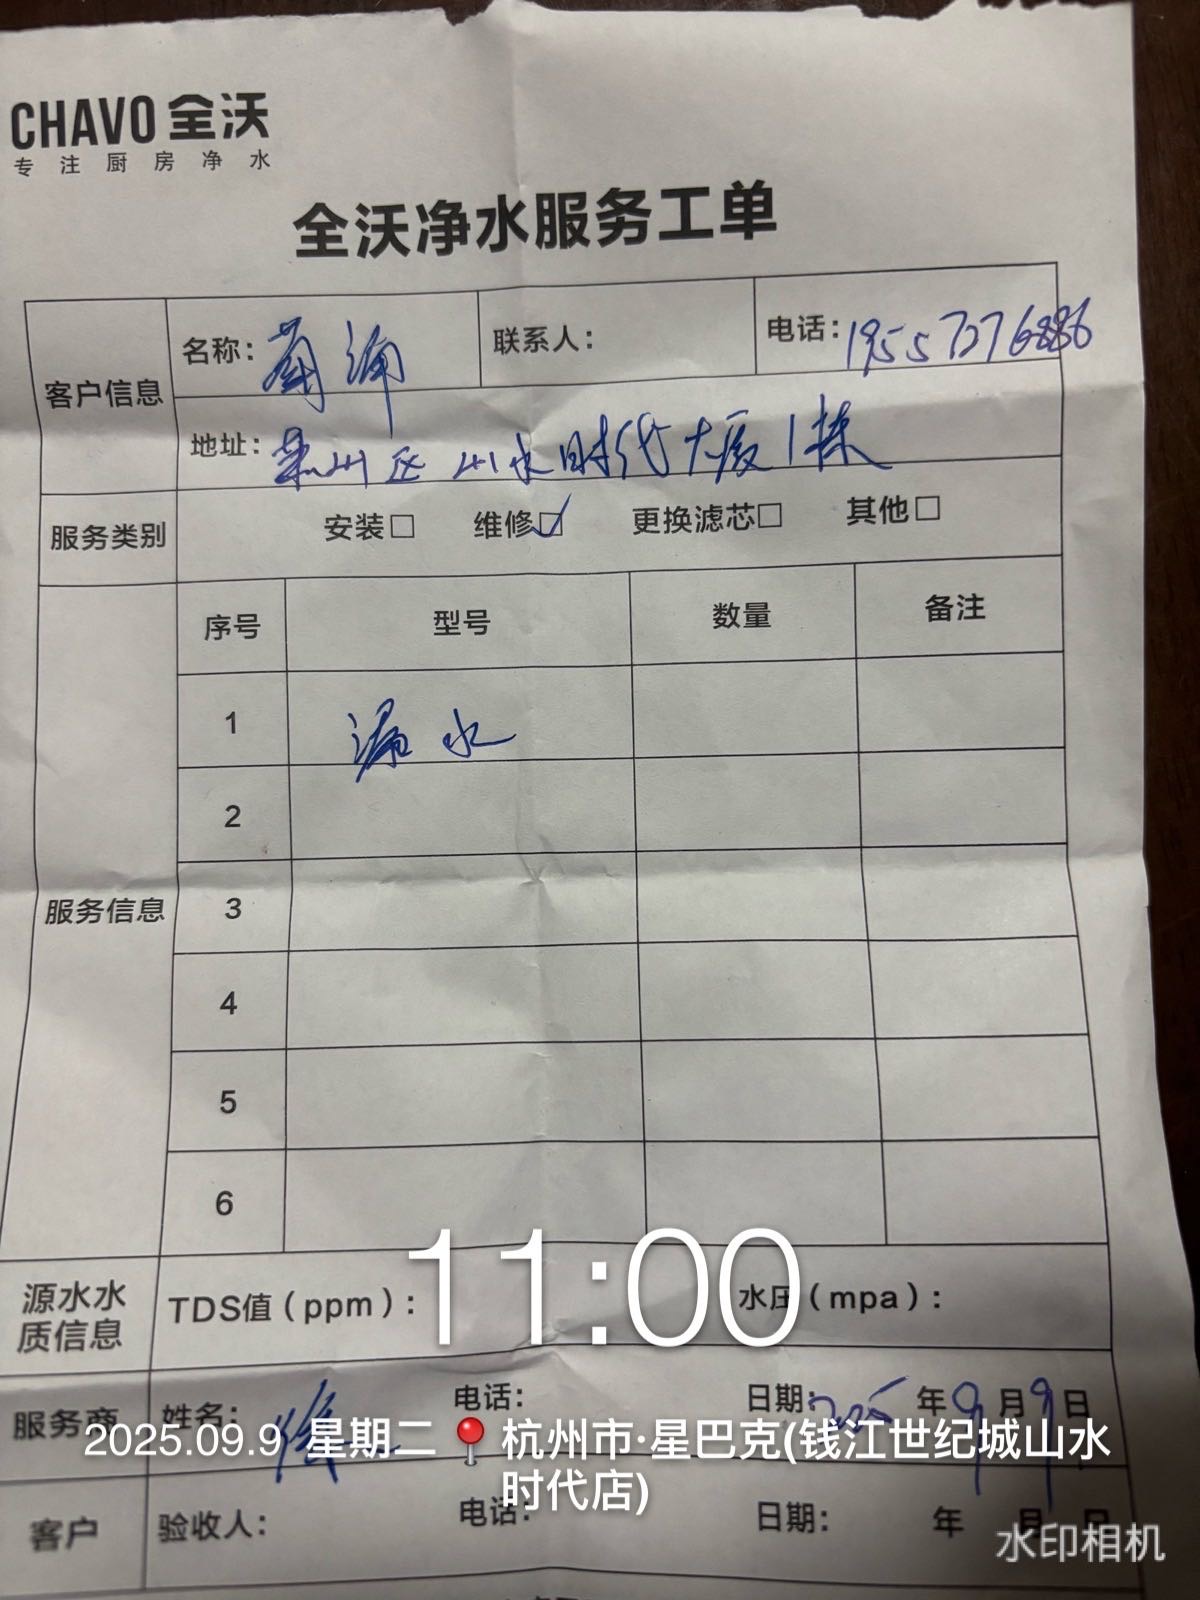 CHAVO 全沃
专注厨房净水
全沃净水服务工单
客户信息
名称：
联系人：
电话：19557376886
地址：萧山区山水时代大厦1栋
服务类别
安装□ 维修☑ 更换滤芯□ 其他□
服务信息
序号 型号 数量 备注
1 漏水
2
3
4
5
6
11:00
源水水质信息
TDS值（ppm）： 水压（mpa）：
服务商 姓名：徐 电话： 日期：2025年9月9日
2025.09.9 星期二 杭州市·星巴克(钱江世纪城山水
时代店)
客户 验收人： 电话： 日期： 年 月 日
水印相机